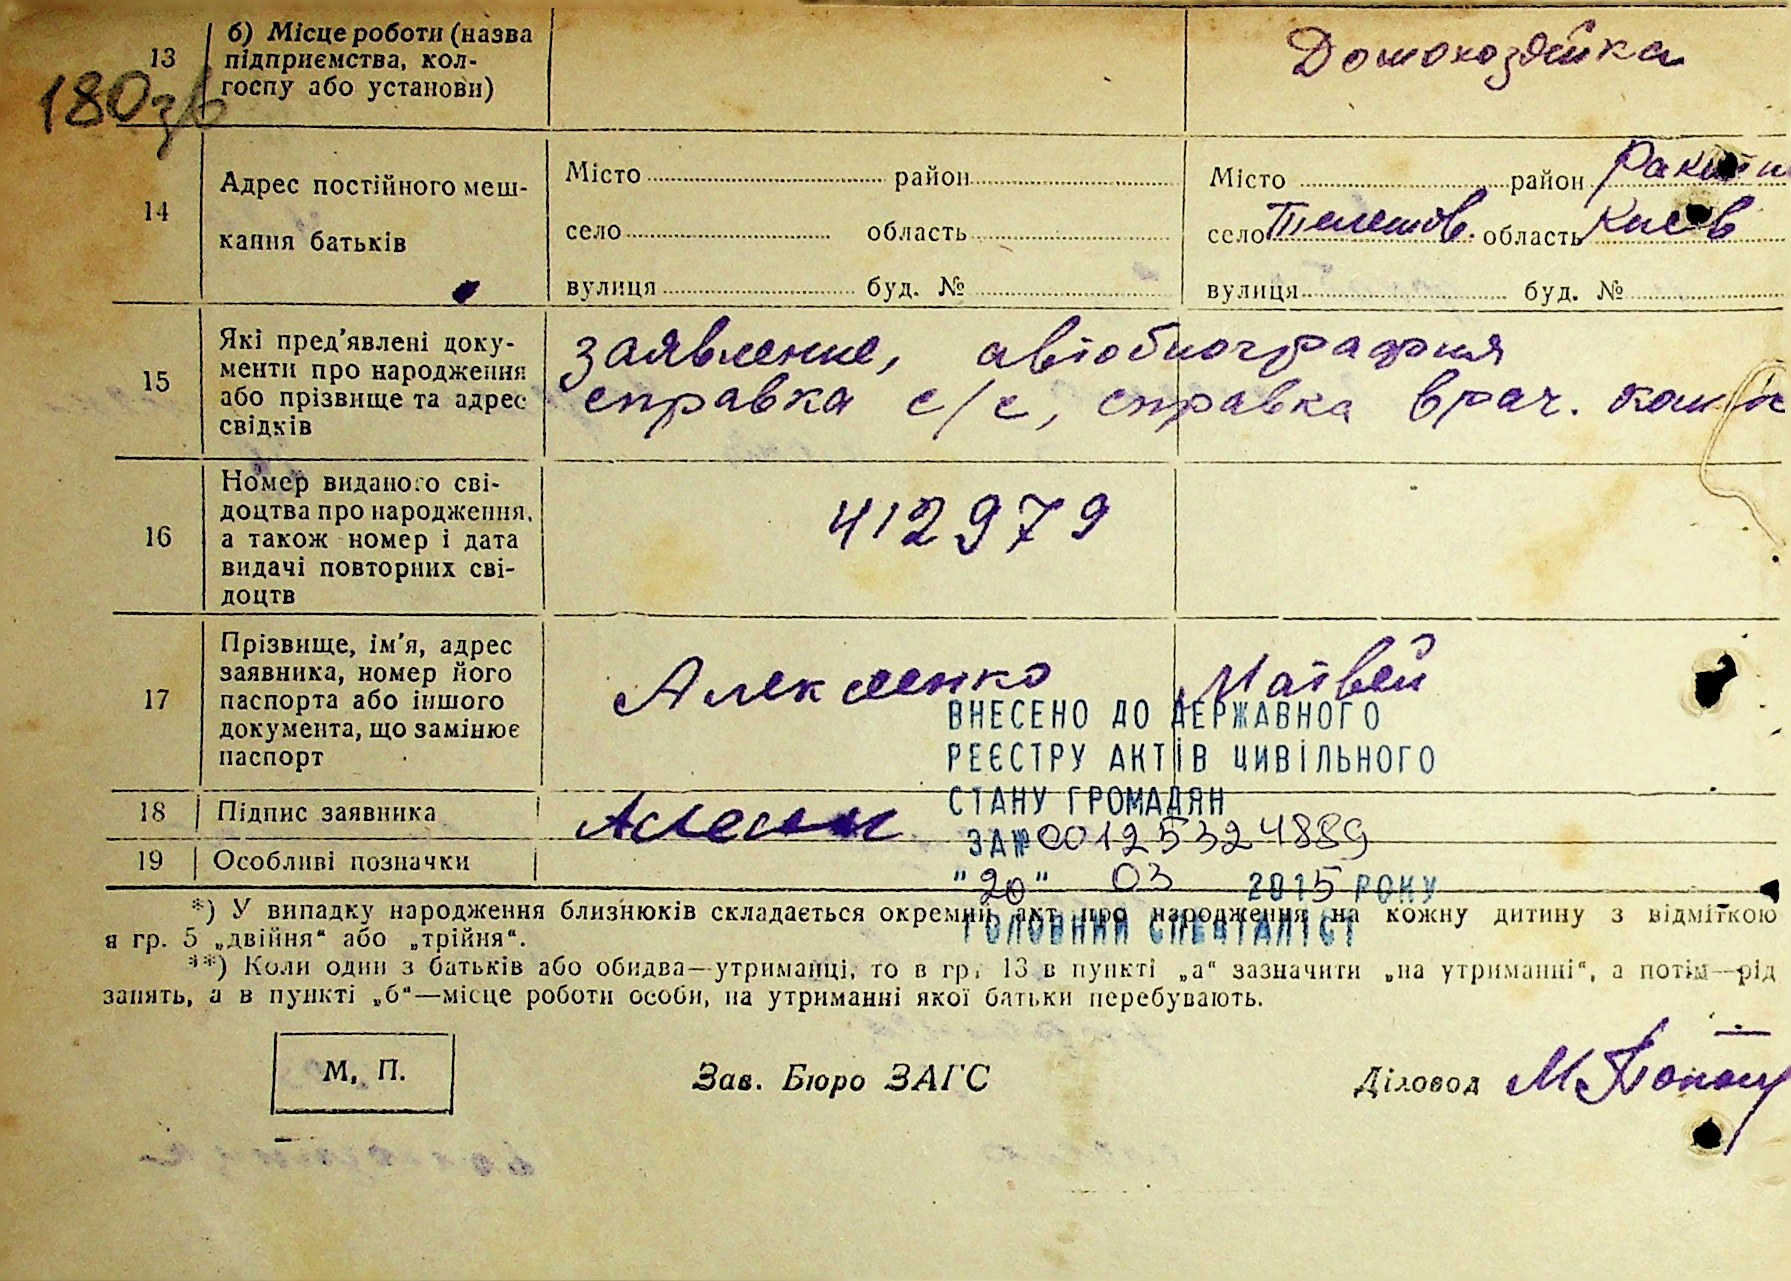 13
б) Місце роботи (назва
підприємства, кол-
госпу або установи)
Домохозяйка
180зв
14
Адрес постійного меш-
кання батьків
Місто район
село область
вулиця буд. №
Місто район Ракитн
село Телешов. область Киев
вулиця буд. №
15
Які пред'явлені доку-
менти про народження
або прізвище та адрес
свідків
заявление, автобиография
справка с/с, справка врач.
16
Номер виданого сві-
доцтва про народження,
а також номер і дата
видачі повторних сві-
доцтв
412979
17
Прізвище, ім'я, адрес
заявника, номер його
паспорта або іншого
документа, що замінює
паспорт
Алексеенко Матвей
ВНЕСЕНО ДО ДЕРЖАВНОГО
РЕЄСТРУ АКТІВ ЦИВІЛЬНОГО
СТАНУ ГРОМАДЯН
ЗА № 00125324889
"20" 03 2015 РОКУ
ГОЛОВНИЙ СПЕЦІАЛІСТ
18 Підпис заявника
19 Особливі позначки
*) У випадку народження близнюків складається окремий акт про народження на кожну дитину з відміткою
я гр. 5 „двійня“ або „трійня“.
**) Коли один з батьків або обидва—утриманці, то в гр. 13 в пункті „а“ зазначити „на утриманні“, а потім—рід
занять, а в пункті „б“—місце роботи особи, на утриманні якої батьки перебувають.
М, П.
Зав. Бюро ЗАГС
Діловод